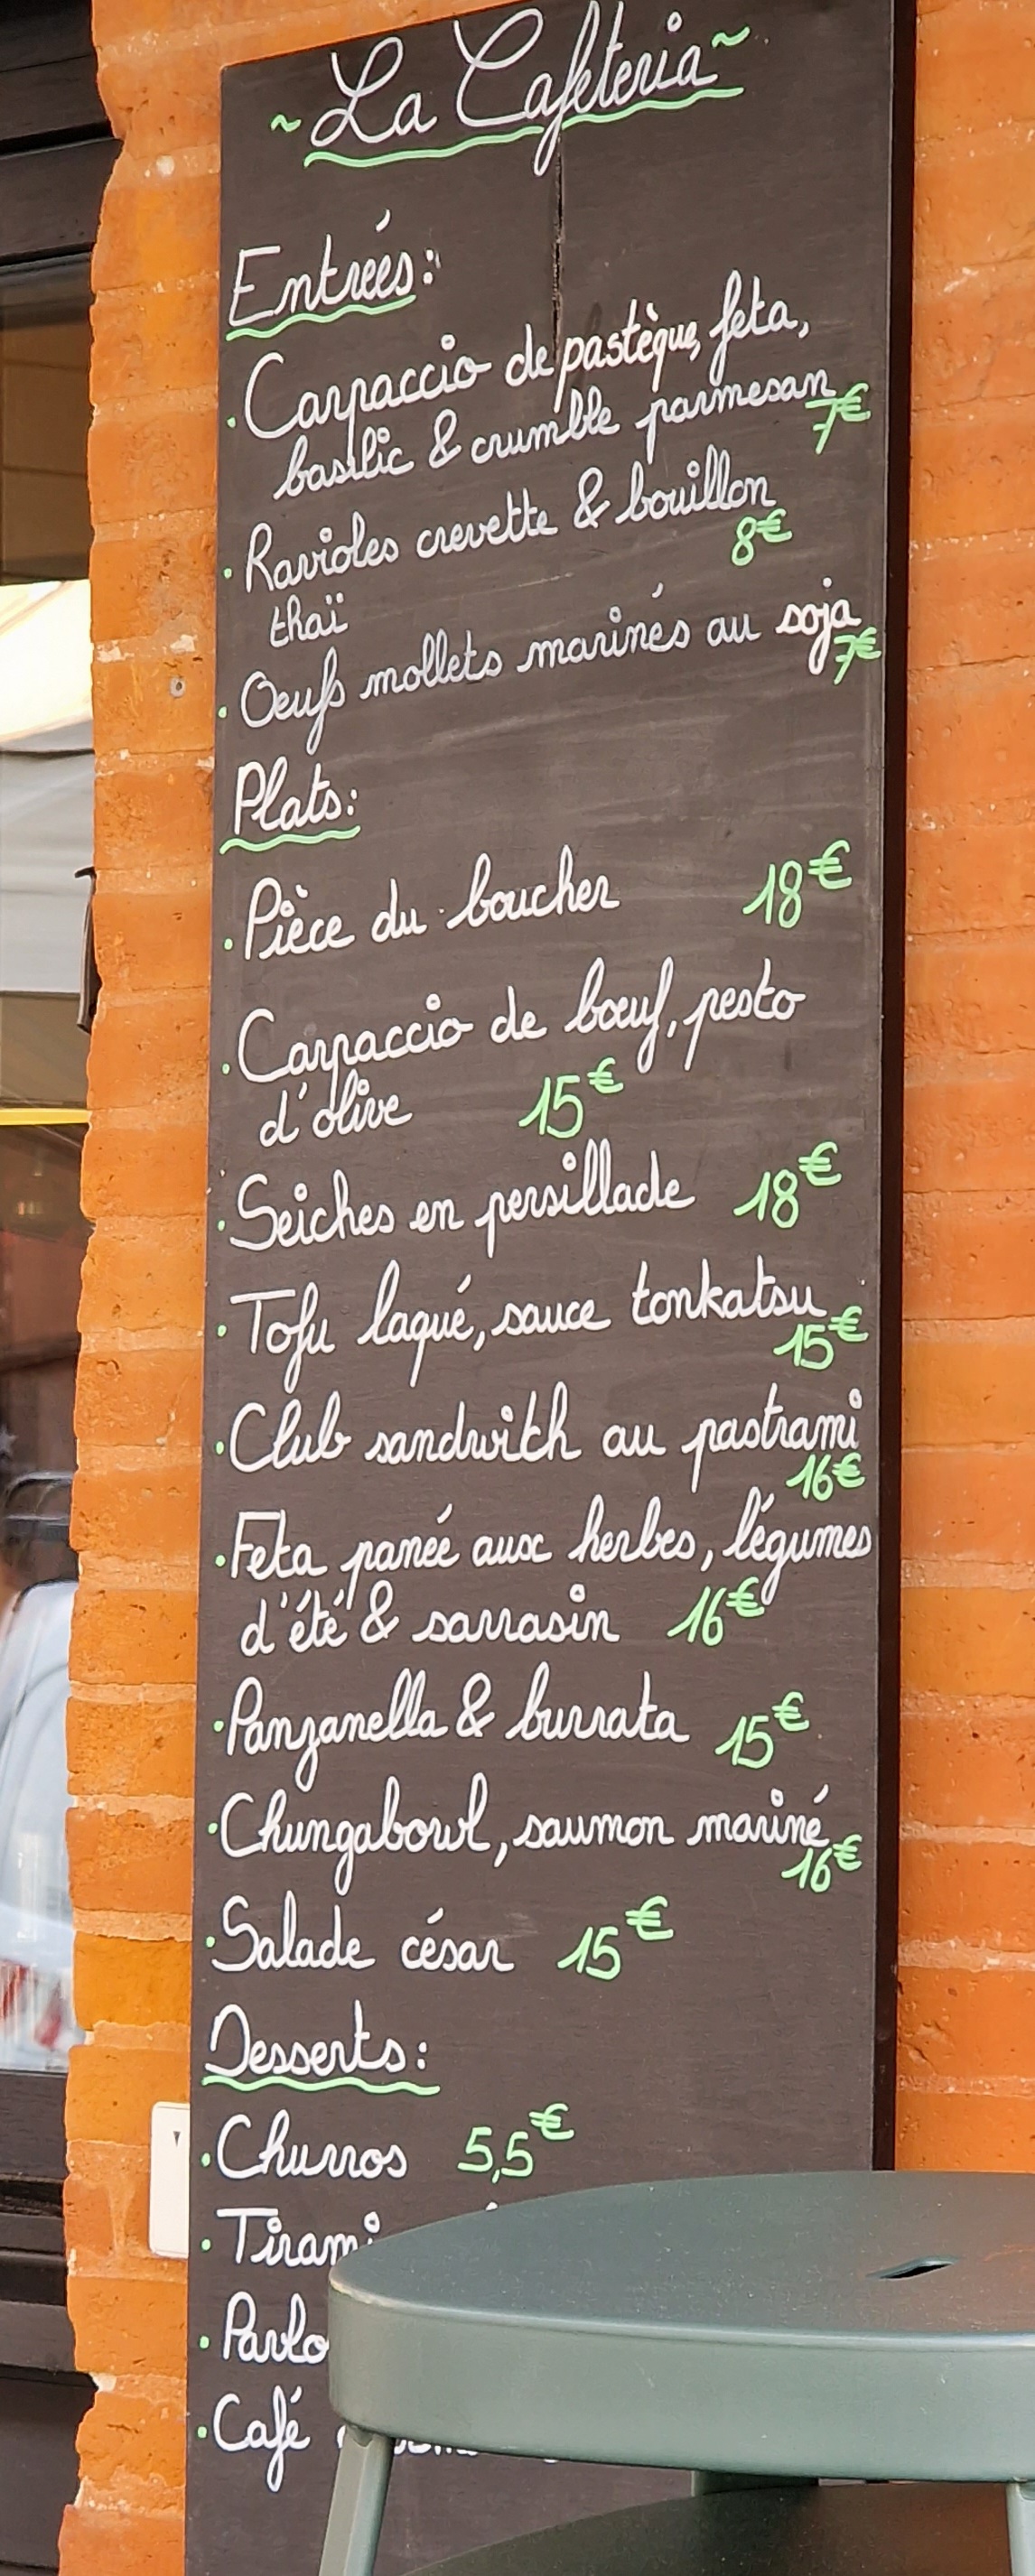 ~ La Cafeteria ~
Entrées:
· Carpaccio de pastèque, feta,
basilic & crumble parmesan 7€
· Ravioles crevette & bouillon
8€
thaï
· Oeufs mollets marinés au soja
7€
Plats:
· Pièce du boucher 18€
· Carpaccio de bœuf, pesto
d'olive 15€
· Seiches en persillade 18€
· Tofu laqué, sauce tonkatsu
15€
· Club sandwith au pastrami
16€
· Feta panée aux herbes, légumes
d'été & sarrasin 16€
· Panzanella & burrata 15€
· Chungabowl, saumon mariné
16€
· Salade césar 15€
Desserts:
· Churros 5,5€
· Tirami
· Pavlo
· Café